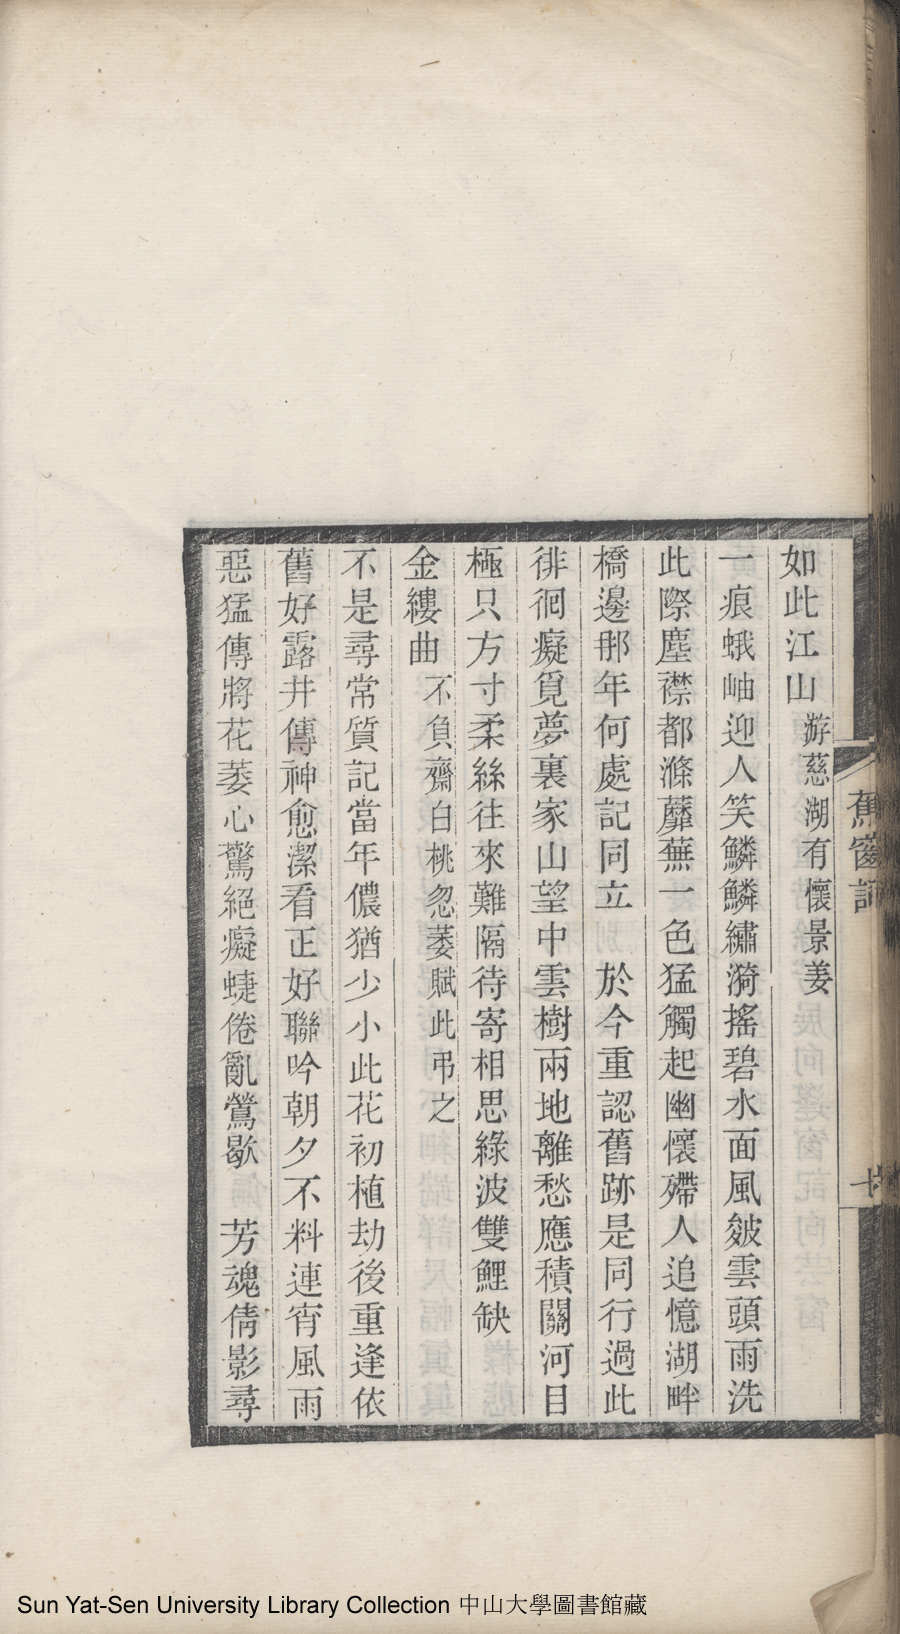 如此江山 游慈湖有懷景姜
一痕蛾岫迎人笑鱗鱗繡漪搖碧水面風皴雲頭雨洗
此際塵襟都滌蘼蕪一色猛觸起幽懷殢人追憶湖畔
橋邊那年何處記同立 於今重認舊跡是同行過此
徘徊癡覓夢裏家山望中雲樹兩地離愁應積關河目
極只方寸柔絲往來難隔待寄相思綠波雙鯉缺
金縷曲 不負齋白桃忽萎賦此弔之
不是尋常質記當年儂猶少小此花初植劫後重逢依
舊好露井傳神愈潔看正好聯吟朝夕不料連宵風雨
惡猛傳將花萎心驚絕癡蜨倦亂鶯歇 芳魂倩影尋
蕉窗詞
十
Sun Yat-Sen University Library Collection 中山大學圖書館藏